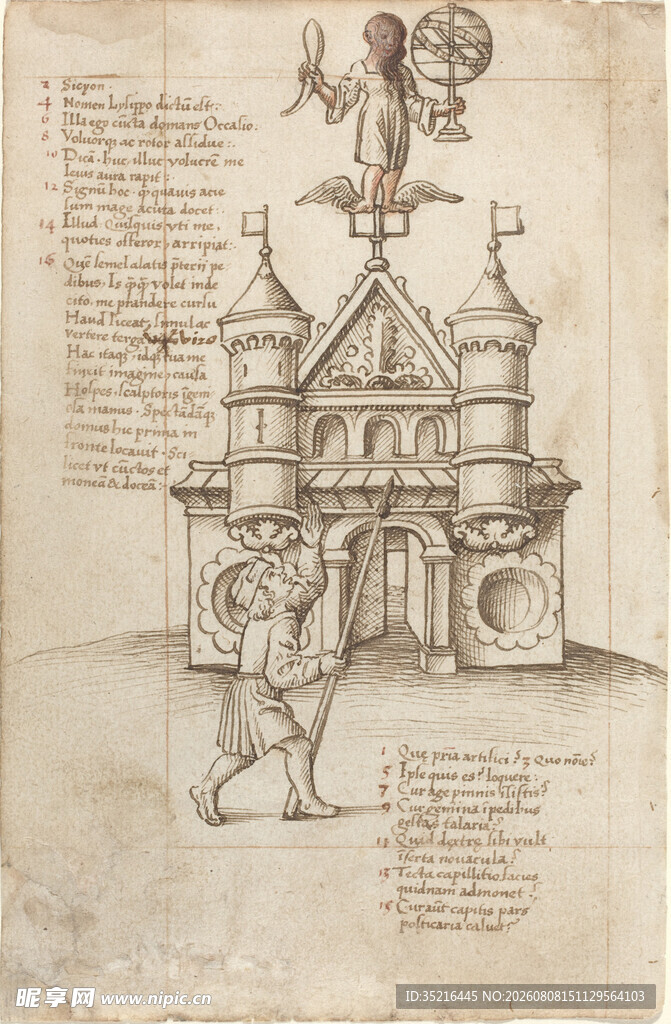 2 Sicyon ·
4 Nomen Lysippo dictū est :·
6 Illa ego cūcta domans Occasio.
8 Voluorq̢ ac rotor assidue :·
10 Dicā · huc, illuc volucrē me
leuis aura rapit :·
12 Signū hoc · q̄ quauis acie
sum mage acuta docet :·
14 Illud · Quisquis vti me,
quoties offeror, arripiat:·
16 Quē semel alatis p̄terij pe
dibus, Is q̄q̄ volet inde
cito, me prandere cursu
Haud liceat, simul ac
vertere terga
Hac itaq̢, idq̢ tua me
finxit imagine, causa
Hospes, sculptoris īgeni
osa manus · Spectādāq̢
domus hic prima in
fronte locauit · Sci
licet vt cūctos et
moneā & doceā :·
1 Quę pr̄ia artifici ? 3 Quo nōīe?
5 Ipse quis es? loquere :
7 Cur age pinnis īsistis?
9 Cur gemina ī pedibus
gestas talaria?
11 Quid dextrę sibi vult
īserta nouacula ?
13 Tecta capillitio facies
quidnam admonet ?
15 Cur aūt capitis pars
posticaria caluet?
昵享网 www.nipic.cn
ID:35216445 NO:20260808151129564103